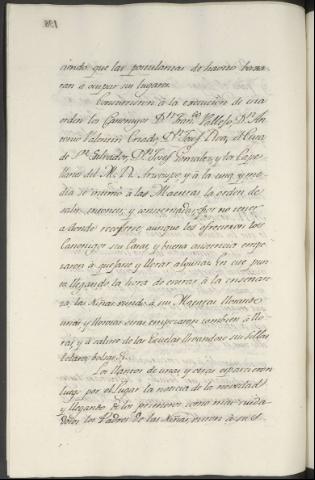 ciendo que las postulantas de havito baxa
ran a ocupar su lugar.
Concurrieron à la execucion de esa
orden los Canonigos Dn. Franco. Vallejo, Dn. An
tonio Valentin Criado, Dn. Josef Roa, el Cura
de Sn. Salvador, Dn. Josef Gonzalez, y los Cape
llanes del M. R. Arzovpo. y à la una y me
dia se intimò à las Maestras la orden de
salir entonces, y consternadas por no tener
a donde recojerse, aunque les ofrecieron los
Canonigos sus Casas, y buena asistencia empe
zaron à quejarse y llorar algunas. En ese pun
to llegando la hora de entrar à la enseñan
za, las Niñas viendo à sus Maestras llorando
unas y llorosas otras empezaron tambien à llo
rar, y à salirse de las Escuelas llevandose sus sillas
bolsas &.
Los llantos de unas y otras esparcieron
luego por el lugar la noticia de la novedad
y llegando de los primeros como mas cuida
dosos los Padres de las Niñas, vieron à su